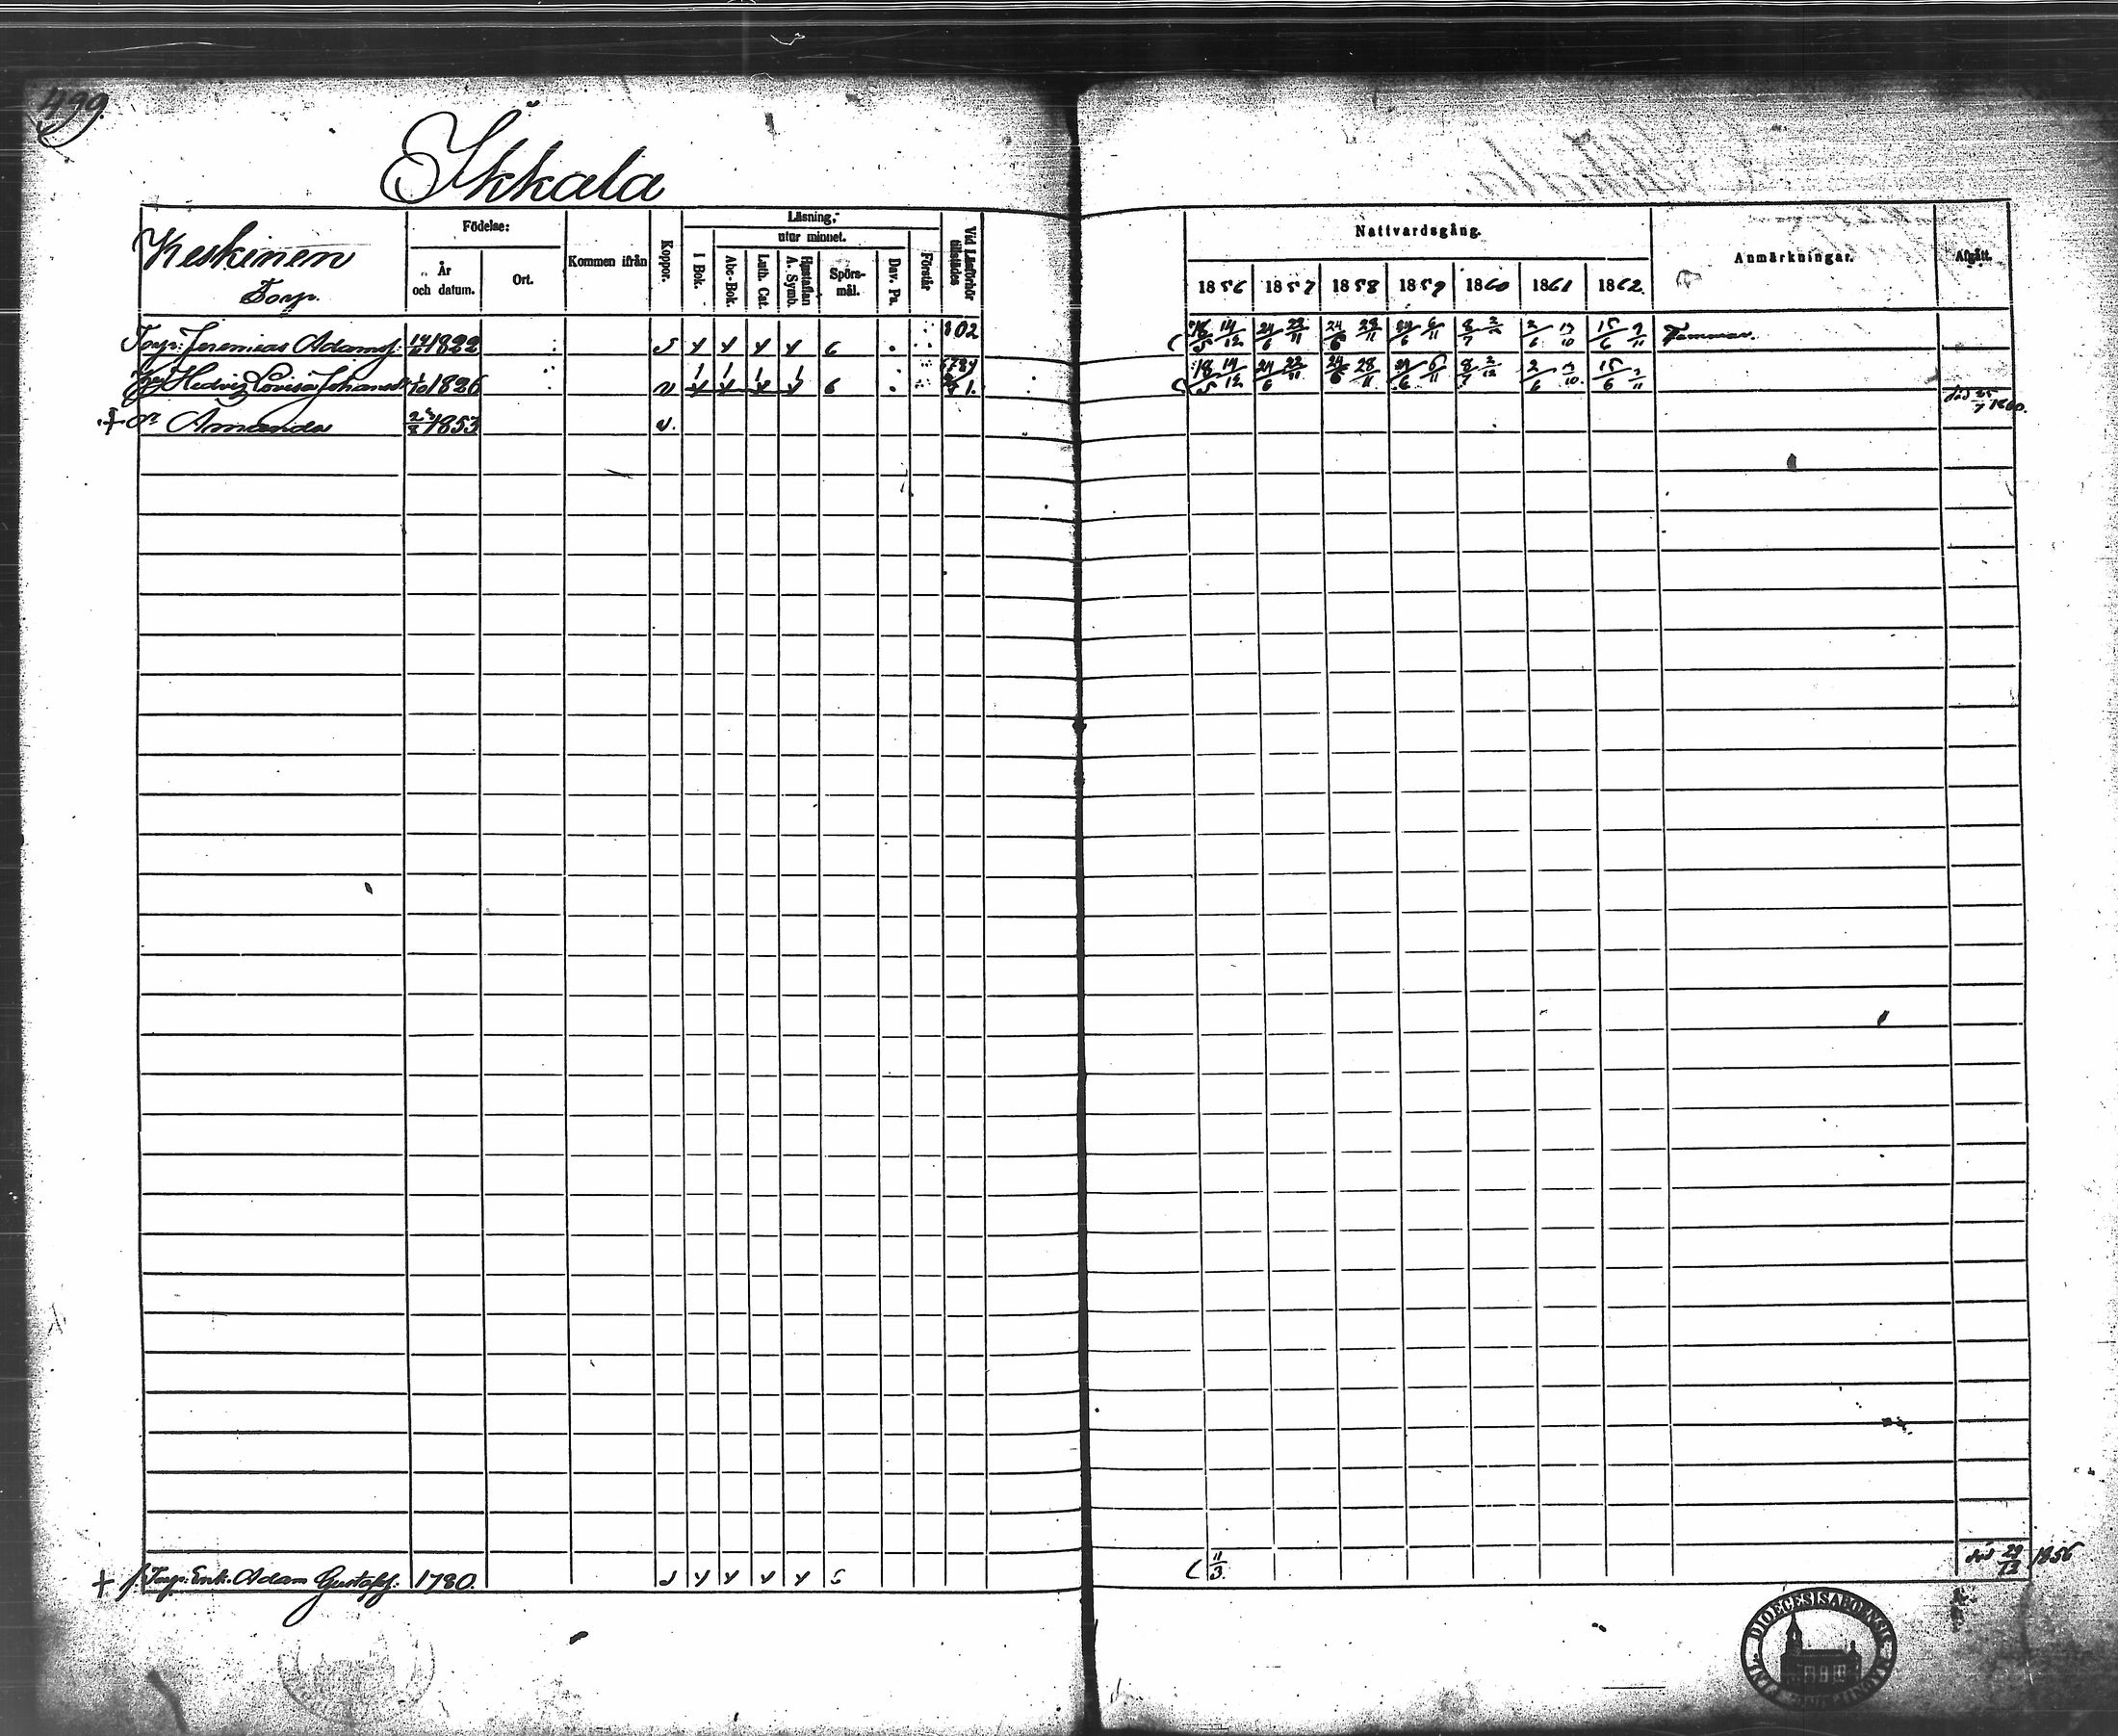 439.
Ikkala
Keskinen
Torp.
Födelse:
År och datum.
Ort.
Kommen ifrån
Koppor.
Läsning,
utur minnet.
I Bok.
Abc-Bok.
Luth. Cat.
Hustaflan A. Symb.
Spörs-mål.
Dav. Ps.
Förstår
Vid Läsförhör tillstädes
Nattvardsgång.
1856 1857 1858 1859 1860 1861 1862.
Anmärkningar.
Afgått.
Torp: Jeremias Adamsf: 14/ 1822 v y y y y 6 C 18/5 14/12 24/6 22/11 24/6 28/11 24/6 6/11 8/7 2/12 2/6 13/10 15/6 9/11
Hedvig Lovisa Johansdr 1/10 1826 v 6 C 18/5 14/12 24/6 22/11 24/6 28/11 24/6 6/11 8/7 2/12 2/6 13/10 15/6 9/11
+ Dr Amanda 25/8 1853 v. död 25/7 1860.
+ f. Torp: Enk. Adam Gustafsf: 1780. v y y y y 5 C 11/3. död 29/12 1856